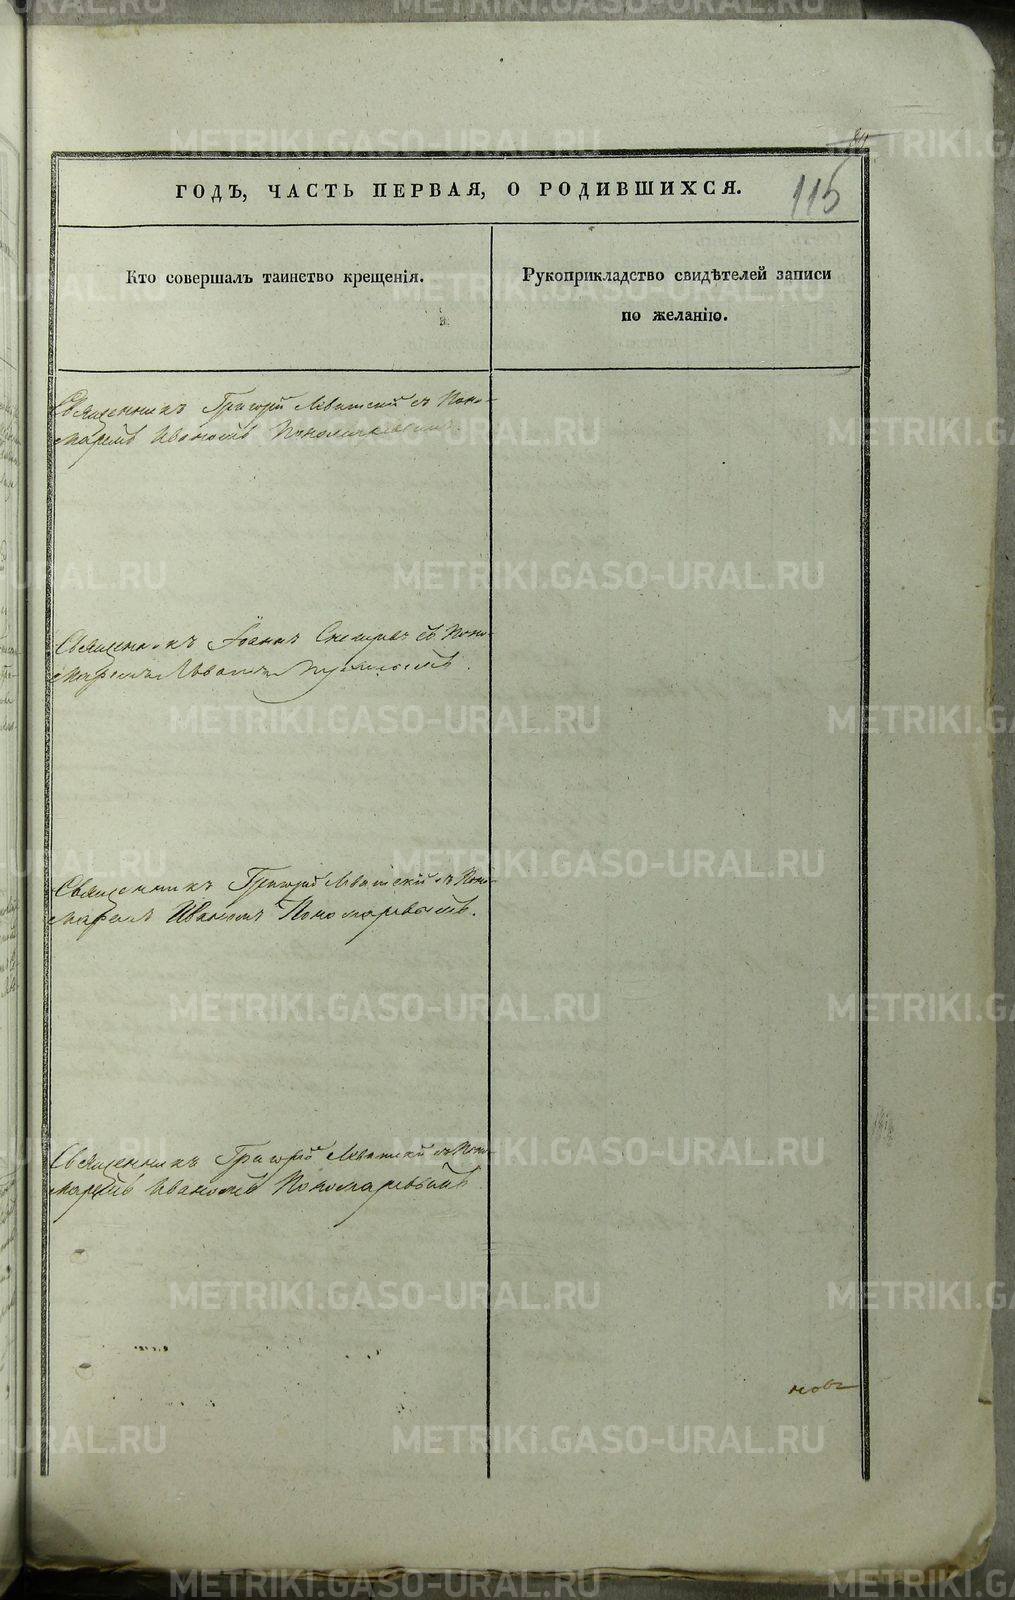 115
ГОДЪ, ЧАСТЬ ПЕРВАЯ, О РОДИВШИХСЯ.
Кто совершалъ таинство крещенія.
Рукоприкладство свидѣтелей записи
по желанію.
Священникъ Григорій Левитскій съ Поно-
маремъ Иваномъ
Священникъ Іоаннъ съ Поно-
маремъ
Священникъ Григорій Левитскій съ Поно-
маремъ Иваномъ Пономаревымъ.
Священникъ Григорій Левитскій съ Поно-
маремъ Иваномъ Пономаревымъ.
METRIKI.GASO-URAL.RU